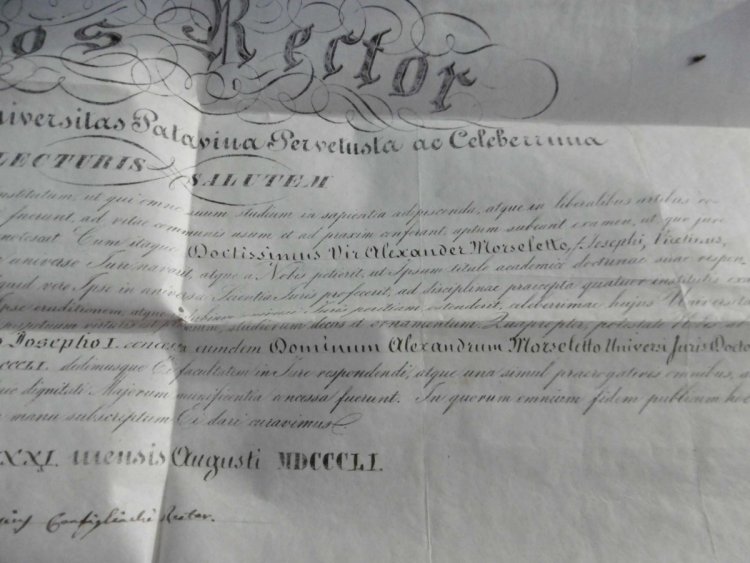 os Rector
niversitas Patavina Pervetusta ac Celeberrima
LECTURIS SALUTEM
institutum, ut qui omne suum studium in sapientia adipiscenda, atque in liberalibus artibus
fuerunt, ad vitae communis usum et ad praxim conferant, aptum subeant examen, ut quo jure
notescat. Cum itaque Doctissimus Vir Alexander Morseletto, Josephi, Vicetinus,
universo Juri navarit, atque a Nobis petierit, ut Ipsum titulo academico doctrinae suae
quid vero Ipse in universa Scientia Juris profecerit, ad disciplinae praecepta quatuor institutis
Ipse eruditionem, atque Juris peritiam ostenderit, celeberrimae hujus
studiorum decus et ornamentum. Quapropter, potestate Nobis
o Josepho I. concessa eumdem Dominum Alexandrum Morseletto Universi Juris Docto
DCCCLI. dedimusque Ei facultatem in Jure respondendi, atque una simul praerogativis omnibus,
dignitati Majorum munificentia annexa fuerunt. In quorum omnium fidem publicum hoc
manu subscriptum Ei dari curavimus
XXXI. mensis Augusti MDCCCLI.
Configliachi Rector.